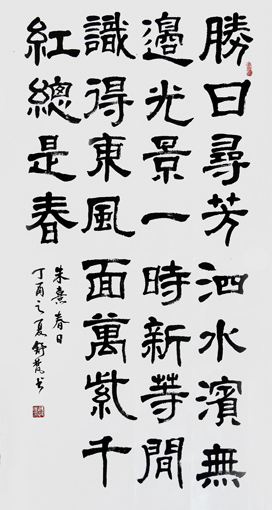 勝日尋芳泗水濱無
邊光景一時新等閒
識得東風面萬紫千
紅總是春
朱熹春日
丁酉之夏舒